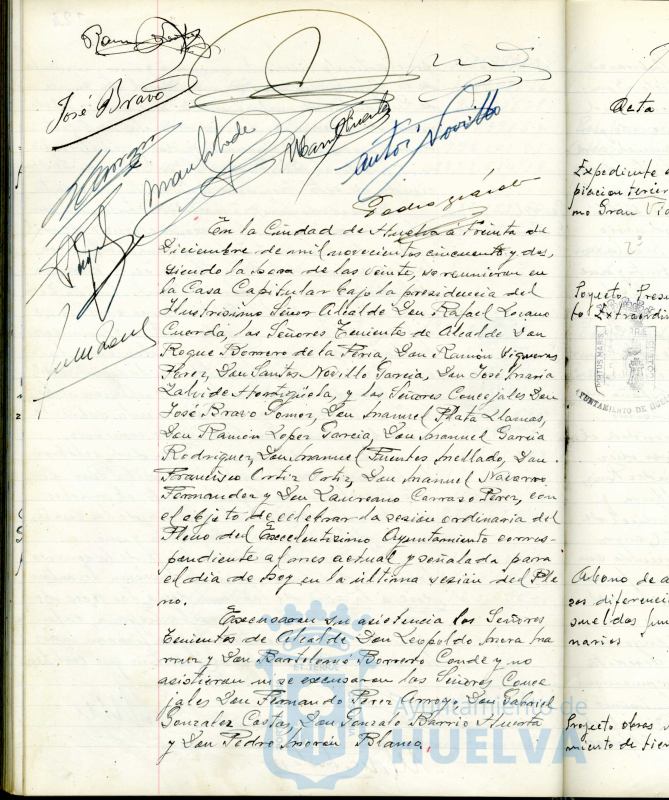 José Bravo
Antoº Novillo
En la Ciudad de Huelva a treinta de
Diciembre de mil novecientos cincuenta y dos,
siendo la hora de las veinte, se reunieron en
la Casa Capitular bajo la presidencia del
Ilustrísimo Señor Alcalde Don Rafael Lozano
Cuerda, los Señores Teniente de Alcalde Don
Roque Borrero de la Feria, Don Ramón Vigueras
Pérez, Don Santos Novillo García, Don José María
Zalvide Hortigüela, y los Señores Concejales Don
José Bravo Gomez, Don Manuel Plata Llamas,
Don Ramón Lopez García, Don Manuel García
Rodriguez, Don Manuel Fuentes Mellado, Don
Francisco Ortiz Ortiz, Don Manuel Navarro
Fernandez y Don Laureano Carrazo Perez, con
el objeto de celebrar la sesión ordinaria del
Pleno del Excelentísimo Ayuntamiento corres-
pondiente al mes actual y señalada para
el día de hoy en la última sesión del Ple
no.
Excusaron su asistencia los Señores
Tenientes de Alcalde Don Leopoldo
y Don Bartolomé Borrero Conde y no
asistieron ni se excusaron los Señores Conce
jales Don Fernando Perez Arroyo, Don Gabriel
Gonzalez Costas, Don Gonzalo Barrio Huerta
y Don Pedro Morón Blanco.
Acta
Expediente
piacion
mo Gran Via
2º
Poyecto Presu
to Extraordi
AYUNTAMIENTO DE HUE
Abono de a
zos diferenci
sueldos fun
narios
Proyecto obras
miento de tier
Ayuntamiento de
HUELVA